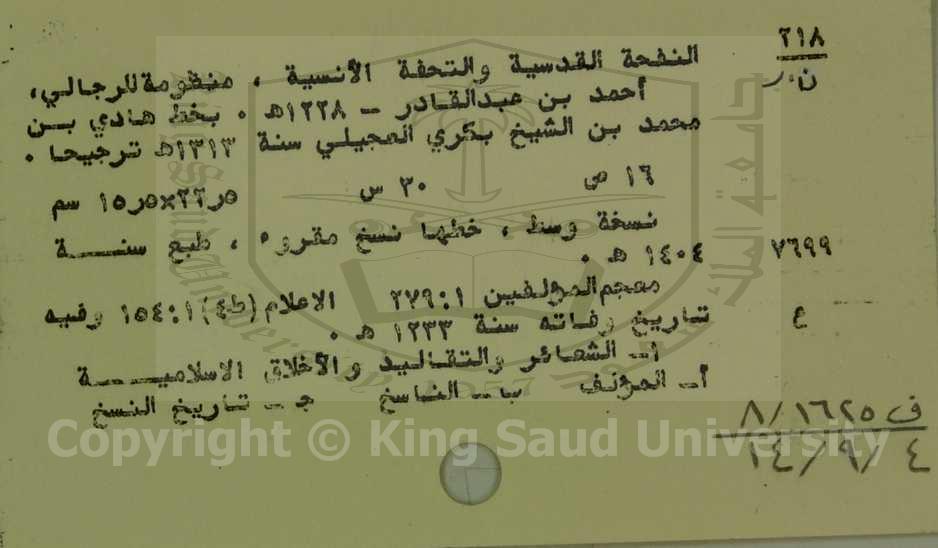 ٢١٨
ن.ر
النفحة القدسية والتحفة الأنسية ، منظومة للرجالي،
أحمد بن عبدالقادر - ١٢٢٨هـ . بخط هادي بــن
محمد بن الشيخ بكري العجيلي سنة ١٣١٣هـ ترجيحا .
١٦ ص ٣٠ س ٥ر٢٢×٥ر١٥ سم
نسخة وسط ، خطها نسخ مقروء ، طبع سنــــة
١٤٠٤ هـ .
٧٦٩٩
معجم المؤلفين ١:٢٧٩ الاعلام (ط٤) ١:١٥٤ وفيه
تاريخ وفاته سنة ١٢٣٣ هـ .
ع
١- الشعائر والتقاليد والأخلاق الاسلاميـــــة
أ- المؤلف ب - الناسخ ج - تاريخ النسخ
ف ١٦٢٥/٨
١٤/٩/٤
Copyright © King Saud University
جامعة الملك
1957